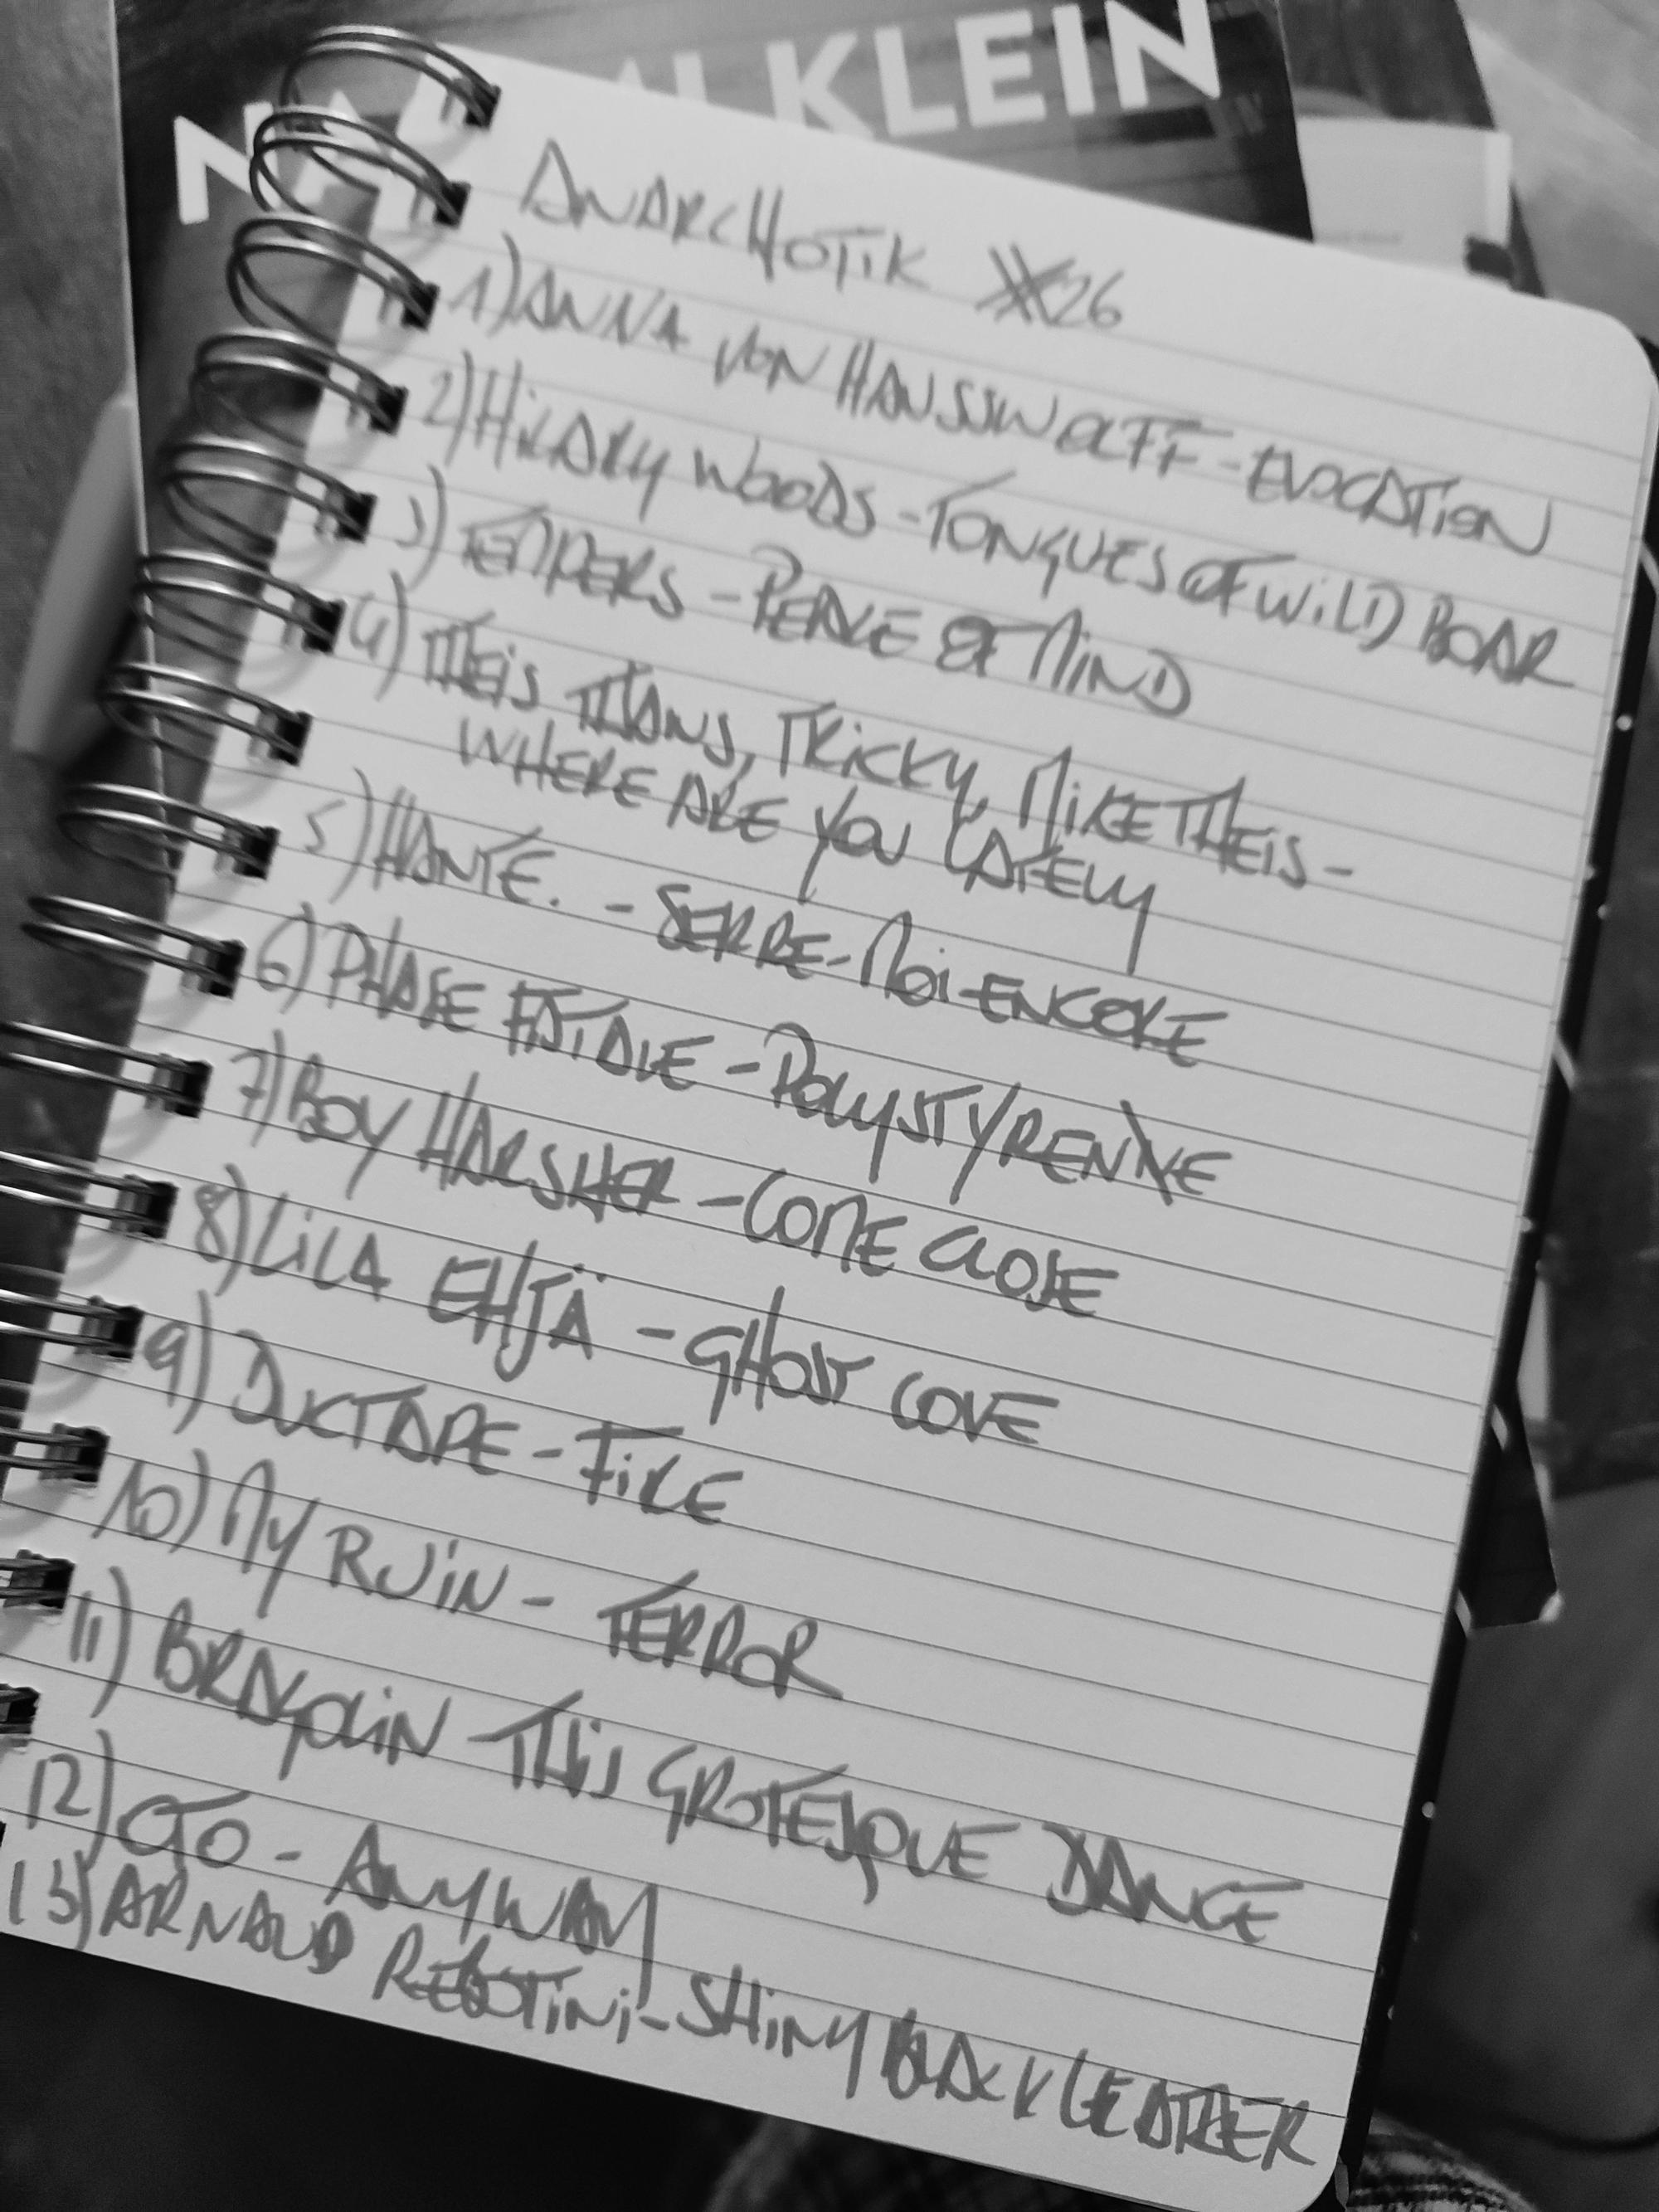 KLEIN
ANARCHOTIK 26
1) ANNA VON HAUSSWOLFF - EVOCATION
2) HILARY WOODS - TONGUES OF WILD BOAR
3) TEMPERS - PEACE OF MIND
4) THEIS THANS, TRICKY, MIKE THEIS -
WHERE ARE YOU LATELY
5) HANTE. - SERRE-MOI ENCORE
6) PHASE FATALE - POLYSTYRENE
7) BOY HARSHER - COME CLOSE
8) LILA EHJÄ - GHOST COVE
9) DUCTAPE - FIRE
10) MY RUIN - TERROR
11) BRAGOLIN - THIS GROTESQUE DANCE
12) OTO - ANYWAY
13) ARNAUD REBOTINI - SHINY BLACK LEATHER